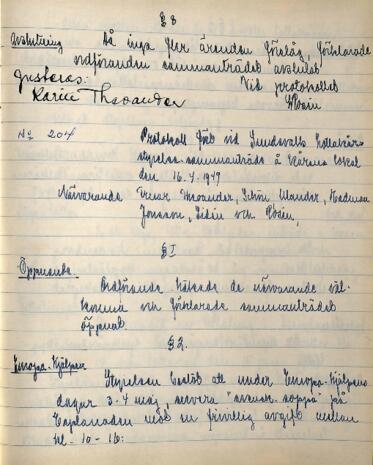 § 8
Avslutning Då inga fler ärenden förelåg, förklarade
ordföranden sammanträdet avslutat
Justeras: Vid protokollet
Karin Theoander
No 204 Protokoll fört vid Sundsvalls Lottakårs
styrelse sammanträde å Kårens lokal
den 16.4.1947
Närvarande Fruar Theoander,
Jonsson, och
§ I
Öppnande.
Ordförande hälsade de närvarande väl-
komna och förklarade sammanträdet
öppnat.
§ 2.
Europa-Hjälpen
Styrelsen beslöt att under Europa-Hjälpens
dagar 3-4 maj, servera "svensk soppa" på
Esplanaden mot en frivillig avgift mellan
kl. 10-16.